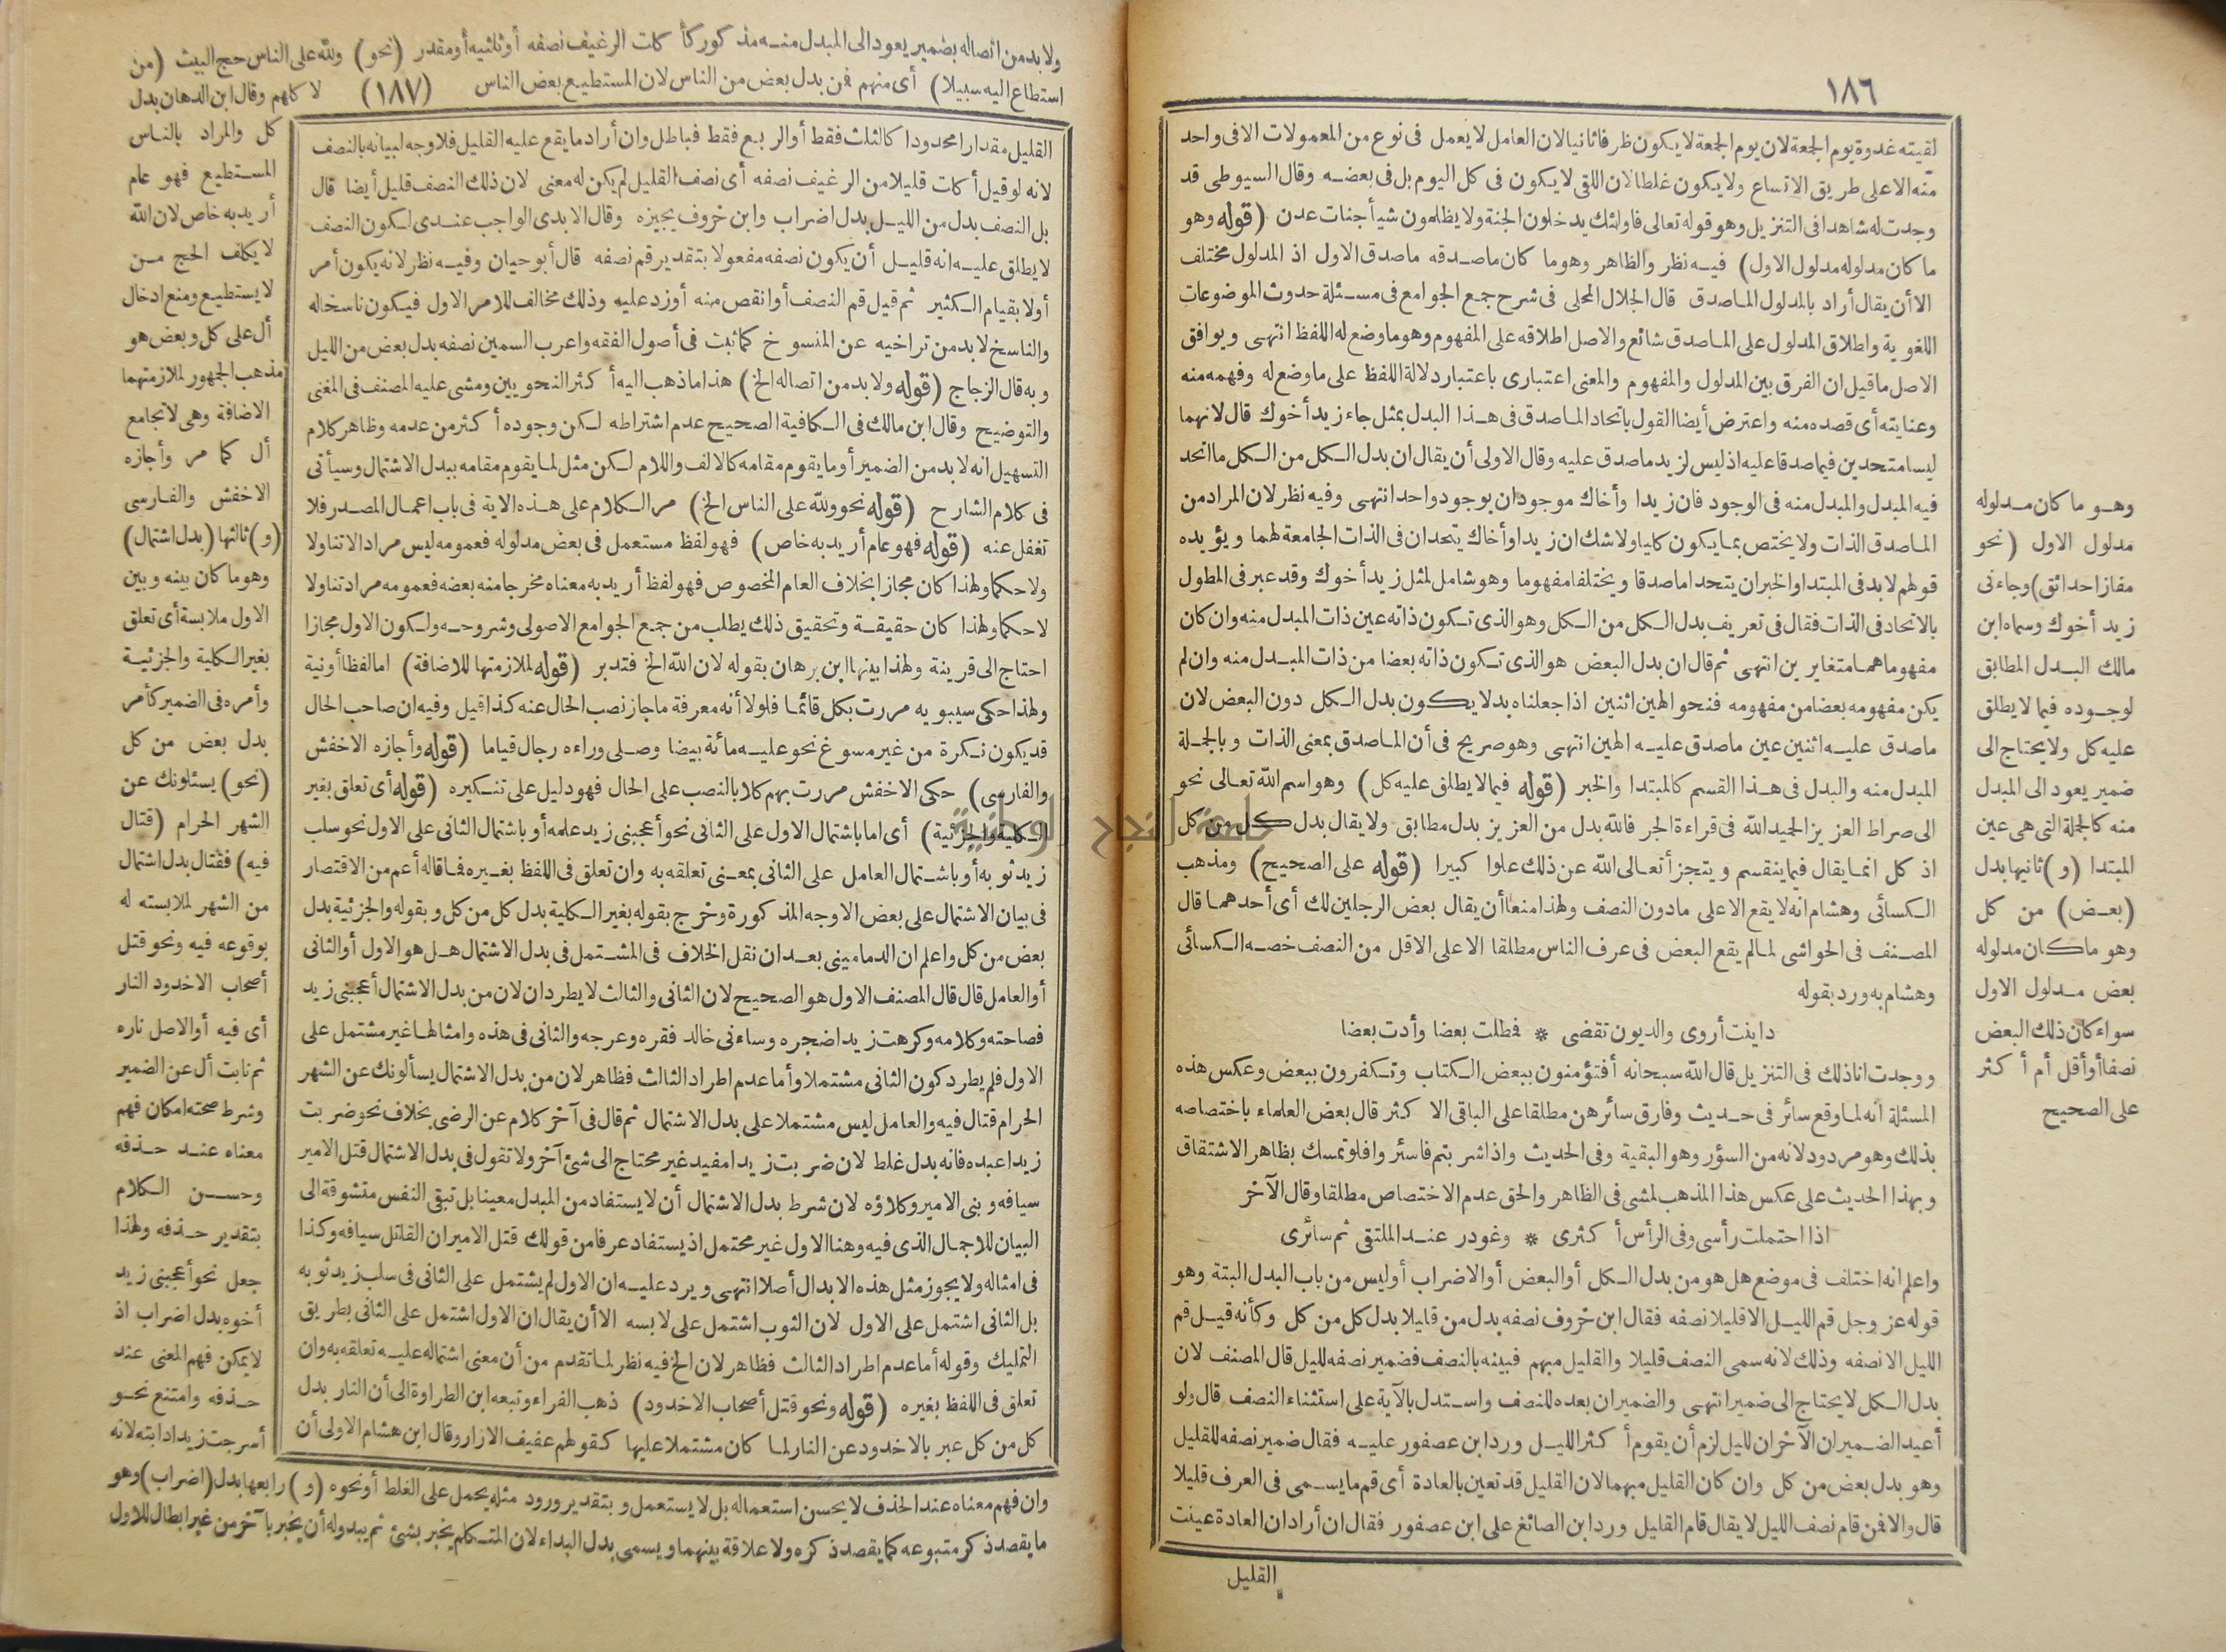 ١٨٦
لقيته غدوة يوم الجمعة لان يوم الجمعة لا يكون ظرفا ثانيا لان العامل لا يعمل فى نوع من المعمولات الا فى واحد
منه الا على طريق الاتساع ولا يكون غلطا لان اللقى لا يكون فى كل اليوم بل فى بعضه وقال السيوطى قد
وجدت له شاهدا فى التنزيل وهو قوله تعالى فاولئك يدخلون الجنة ولا يظلمون شيأ جنات عدن (قوله وهو
ما كان مدلوله مدلول الاول) فيه نظر والظاهر وهو ما كان ماصدقه ماصدق الاول اذ المدلول مختلف
الا أن يقال أراد بالمدلول الماصدق قال الجلال المحلى فى شرح جمع الجوامع فى مسئلة حدوث الموضوعات
اللغوية واطلاق المدلول على الماصدق شائع والاصل اطلاقه على المفهوم وهو ما وضع له اللفظ انتهى ويوافق
الاصل ما قيل ان الفرق بين المدلول والمفهوم والمعنى اعتبارى باعتبار دلالة اللفظ على ما وضع له وفهمه منه
وعنايته أى قصده منه واعترض أيضا القول باتحاد الماصدق فى هذا البدل بمثل جاء زيد أخوك قال لانهما
ليسا متحدين فيما صدقا عليه اذ ليس لزيد ما صدق عليه وقال الاولى أن يقال ان بدل الكل من الكل ما اتحد
فيه المبدل والمبدل منه فى الوجود فان زيدا وأخاك موجودان بوجود واحد انتهى وفيه نظر لان المراد من
الماصدق الذات ولا يختص بما يكون كليا ولا شك ان زيدا وأخاك يتحدان فى الذات الجامعة لهما ويؤيده
قولهم لا بد فى المبتدا والخبر ان يتحدا ماصدقا ويختلفا مفهوما وهو شامل لمثل زيد أخوك وقد عبر فى المطول
بالاتحاد فى الذات فقال فى تعريف بدل الكل من الكل وهو الذى تكون ذاته عين ذات المبدل منه وان كان
مفهوماهما متغايرين انتهى ثم قال ان بدل البعض هو الذى تكون ذاته بعضا من ذات المبدل منه وان لم
يكن مفهومه بعضا من مفهومه فنحو الهين اثنين اذا جعلناه بدلا يكون بدل الكل دون البعض لان
ماصدق عليه اثنين عين ماصدق عليه الهين انتهى وهو صريح فى أن الماصدق بمعنى الذات وبالجملة
المبدل منه والبدل فى هذا القسم كالمبتدا والخبر (قوله فيما لا يطلق عليه كل) وهو اسم الله تعالى نحو
الى صراط العزيز الحميد الله فى قراءة الجر فالله بدل من العزيز بدل مطابق ولا يقال بدل كل من كل
اذ كل انما يقال فيما ينقسم ويتجزأ تعالى الله عن ذلك علوا كبيرا (قوله على الصحيح) ومذهب
الكسائى وهشام انه لا يقع الا على مادون النصف ولهذا منعا أن يقال بعض الرجلين لك أى أحدهما قال
المصنف فى الحواشى لما لم يقع البعض فى عرف الناس مطلقا الا على الاقل من النصف خصه الكسائى
وهشام به ورد بقوله
داينت أروى والديون تقضى * فطلت بعضا وأدت بعضا
ووجدت انا ذلك فى التنزيل قال الله سبحانه أفتؤمنون ببعض الكتاب وتكفرون ببعض وعكس هذه
المسئلة انه لما وقع سائر فى حديث وفارق سائرهن مطلقا على الباقى الا كثر قال بعض العلماء باختصاصه
بذلك وهو مردود لانه من السؤر وهو البقية وفى الحديث واذا شربتم فاسئروا فلو تمسك بظاهر الاشتقاق
وبهذا الحديث على عكس هذا المذهب لمشى فى الظاهر والحق عدم الاختصاص مطلقا وقال الآخر
اذا احتملت رأسى وفى الرأس أكثرى * وغودر عند الملتقى ثم سائرى
واعلم انه اختلف فى موضع هل هو من بدل الكل أو البعض أو الاضراب أو ليس من باب البدل البتة وهو
قوله عز وجل قم الليل الا قليلا نصفه فقال ابن خروف نصفه بدل من قليلا بدل كل من كل وكأنه قيل قم
الليل الا نصفه وذلك لانه سمى النصف قليلا والقليل مبهم فبينه بالنصف فضمير نصفه لليل قال المصنف لان
بدل الكل لا يحتاج الى ضمير انتهى والضميران بعده للنصف واستدل بالآية على استثناء النصف قال ولو
أعيد الضميران الآخران لليل لزم أن يقوم أكثر الليل ورد ابن عصفور عليه فقال ضمير نصفه للقليل
وهو بدل بعض من كل وان كان القليل مبهما لان القليل قد تعين بالعادة أى قم ما يسمى فى العرف قليلا
قال والا فمن قام نصف الليل لا يقال قام القليل ورد ابن الصائغ على ابن عصفور فقال ان أراد ان العادة عينت
القليل
وهو ما كان مدلوله
مدلول الاول (نحو
مفازا حدائق) وجاءنى
زيد أخوك وسماه ابن
مالك البدل المطابق
لوجوده فيما لا يطلق
عليه كل ولا يحتاج الى
ضمير يعود الى المبدل
منه كالجملة التى هى عين
المبتدا (و) ثانيها بدل
(بعض) من كل
وهو ما كان مدلوله
بعض مدلول الاول
سواء كان ذلك البعض
نصفا أو أقل أم أكثر
على الصحيح
ولا بد من اتصاله بضمير يعود الى المبدل منه مذكور كأكلت الرغيف نصفه أو ثلثيه أو مقدر (نحو) ولله على الناس حج البيت (من
استطاع اليه سبيلا) أى منهم فمن بدل بعض من الناس لان المستطيع بعض الناس (١٨٧) لا كلهم وقال ابن الدهان بدل
القليل مقدارا محدودا كالثلث فقط أو الربع فقط فباطل وان أراد ما يقع عليه القليل فلا وجه لبيانه بالنصف
لانه لو قيل أكلت قليلا من الرغيف نصفه أى نصف القليل لم يكن له معنى لان ذلك النصف قليل أيضا قال
بل النصف بدل من الليل بدل اضراب وابن خروف يجيزه وقال الابدى الواجب عندى لكون النصف
لا يطلق عليه انه قليل أن يكون نصفه مفعولا بتقدير قم نصفه قال أبو حيان وفيه نظر لانه يكون أمر
أولا بقيام الكثير ثم قيل قم النصف أو انقص منه أو زد عليه وذلك مخالف للامر الاول فيكون ناسخا له
والناسخ لا بد من تراخيه عن المنسوخ كما ثبت فى أصول الفقه واعرب السمين نصفه بدل بعض من الليل
وبه قال الزجاج (قوله ولا بد من اتصاله الخ) هذا ما ذهب اليه أكثر النحويين ومشى عليه المصنف فى المغنى
والتوضيح وقال ابن مالك فى الكافية الصحيح عدم اشتراطه لكن وجوده أكثر من عدمه وظاهر كلام
التسهيل انه لا بد من الضمير أو ما يقوم مقامه كالالف واللام لكن مثل لما يقوم مقامه ببدل الاشتمال وسيأتى
فى كلام الشارح (قوله نحو ولله على الناس الخ) مر الكلام على هذه الاية فى باب اعمال المصدر فلا
تغفل عنه (قوله فهو عام أريد به خاص) فهو لفظ مستعمل فى بعض مدلوله فعمومه ليس مرادا لا تناولا
ولا حكما ولهذا كان مجازا بخلاف العام المخصوص فهو لفظ أريد به معناه مخرجا منه بعضه فعمومه مراد تناولا
لا حكما ولهذا كان حقيقة وتحقيق ذلك يطلب من جمع الجوامع الاصولى وشروحه ولكون الاول مجازا
احتاج الى قرينة ولهذا بينها ابن برهان بقوله لان الله الخ فتدبر (قوله لملازمتها للاضافة) اما لفظا أو نية
ولهذا حكى سيبويه مررت بكل قائما فلولا أنه معرفة ما جاز نصب الحال عنه كذا قيل وفيه ان صاحب الحال
قد يكون نكرة من غير مسوغ نحو عليه مائة بيضا وصلى وراءه رجال قياما (قوله وأجازه الاخفش
والفارسى) حكى الاخفش مررت بهم كلا بالنصب على الحال فهو دليل على تنكيره (قوله أى تعلق بغير
الكلية والجزئية) أى اما باشتمال الاول على الثانى نحو أعجبنى زيد علمه أو باشتمال الثانى على الاول نحو سلب
زيد ثوبه أو باشتمال العامل على الثانى بمعنى تعلقه به وان تعلق فى اللفظ بغيره فما قاله أعم من الاقتصار
فى بيان الاشتمال على بعض الاوجه المذكورة وخرج بقوله بغير الكلية بدل كل من كل وبقوله والجزئية بدل
بعض من كل واعلم ان الدمامينى بعد ان نقل الخلاف فى المشتمل فى بدل الاشتمال هل هو الاول أو الثانى
أو العامل قال قال المصنف الاول هو الصحيح لان الثانى والثالث لا يطردان لان من بدل الاشتمال أعجبنى زيد
فصاحته وكلامه وكرهت زيدا ضجره وساءنى خالد فقره وعرجه والثانى فى هذه وامثالها غير مشتمل على
الاول فلم يطرد كون الثانى مشتملا وأما عدم اطراد الثالث فظاهر لان من بدل الاشتمال يسألونك عن الشهر
الحرام قتال فيه والعامل ليس مشتملا على بدل الاشتمال ثم قال فى آخر كلام عن الرضى بخلاف نحو ضربت
زيدا عبده فانه بدل غلط لان ضربت زيدا مفيد غير محتاج الى شئ آخر ولا تقول فى بدل الاشتمال قتل الامير
سيافه وبنى الامير وكلاؤه لان شرط بدل الاشتمال أن لا يستفاد من المبدل معينا بل تبقى النفس متشوقة الى
البيان للاجمال الذى فيه وهنا الاول غير محتمل اذ يستفاد عرفا من قولك قتل الامير ان القاتل سيافه وكذا
فى امثاله ولا يجوز مثل هذه الابدال أصلا انتهى ويرد عليه ان الاول لم يشتمل على الثانى فى سلب زيد ثوبه
بل الثانى اشتمل على الاول لان الثوب اشتمل على لابسه الا أن يقال ان الاول اشتمل على الثانى بطريق
التمليك وقوله أما عدم اطراد الثالث فظاهر لان الخ فيه نظر لما تقدم من أن معنى اشتماله عليه تعلقه به وان
تعلق فى اللفظ بغيره (قوله ونحو قتل أصحاب الاخدود) ذهب الفراء وتبعه ابن الطراوة الى أن النار بدل
كل من كل عبر بالاخدود عن النار لما كان مشتملا عليها كقولهم عفيف الازار وقال ابن هشام الاولى أن
كل والمراد بالناس
المستطيع فهو عام
أريد به خاص لان الله
لا يكلف الحج من
لا يستطيع ومنع ادخال
أل على كل وبعض هو
مذهب الجمهور لملازمتهما
الاضافة وهى لا تجامع
أل كما مر وأجازه
الاخفش والفارسى
(و) ثالثها (بدل اشتمال)
وهو ما كان بينه وبين
الاول ملابسة أى تعلق
بغير الكلية والجزئية
وأمره فى الضمير كأمر
بدل بعض من كل
(نحو) يسئلونك عن
الشهر الحرام (قتال
فيه) فقتال بدل اشتمال
من الشهر لملابسته له
بوقوعه فيه ونحو قتل
أصحاب الاخدود النار
أى فيه أو الاصل ناره
ثم نابت أل عن الضمير
وشرط صحته امكان فهم
معناه عند حذفه
وحسن الكلام
بتقدير حذفه ولهذا
جعل نحو أعجبنى زيد
أخوه بدل اضراب اذ
لا يمكن فهم المعنى عند
حذفه وامتنع نحو
أسرجت زيدا دابته لانه
وان فهم معناه عند الحذف لا يحسن استعماله بل لا يستعمل وبتقدير ورود مثله يحمل على الغلط أو نحوه (و) رابعها بدل (اضراب) وهو
ما يقصد ذكر متبوعه كما يقصد ذكره ولا علاقة بينهما ويسمى بدل البداء لان المتكلم يخبر بشئ ثم يبدو له أن يخبر بآخر من غير ابطال للاول
جامعة النجاح الوطنية